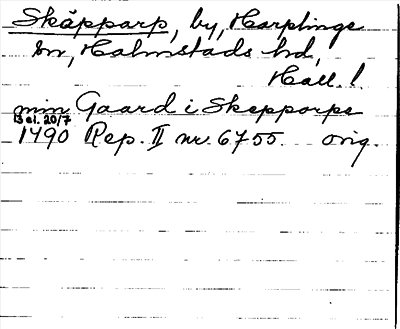 Skäpparp, by, Harplinge
sn, Halmstads hd,
Hall. l.
min Gaard i Skepporpe
13 ei. 20/7
1490 Rep. II nr. 6755. orig.